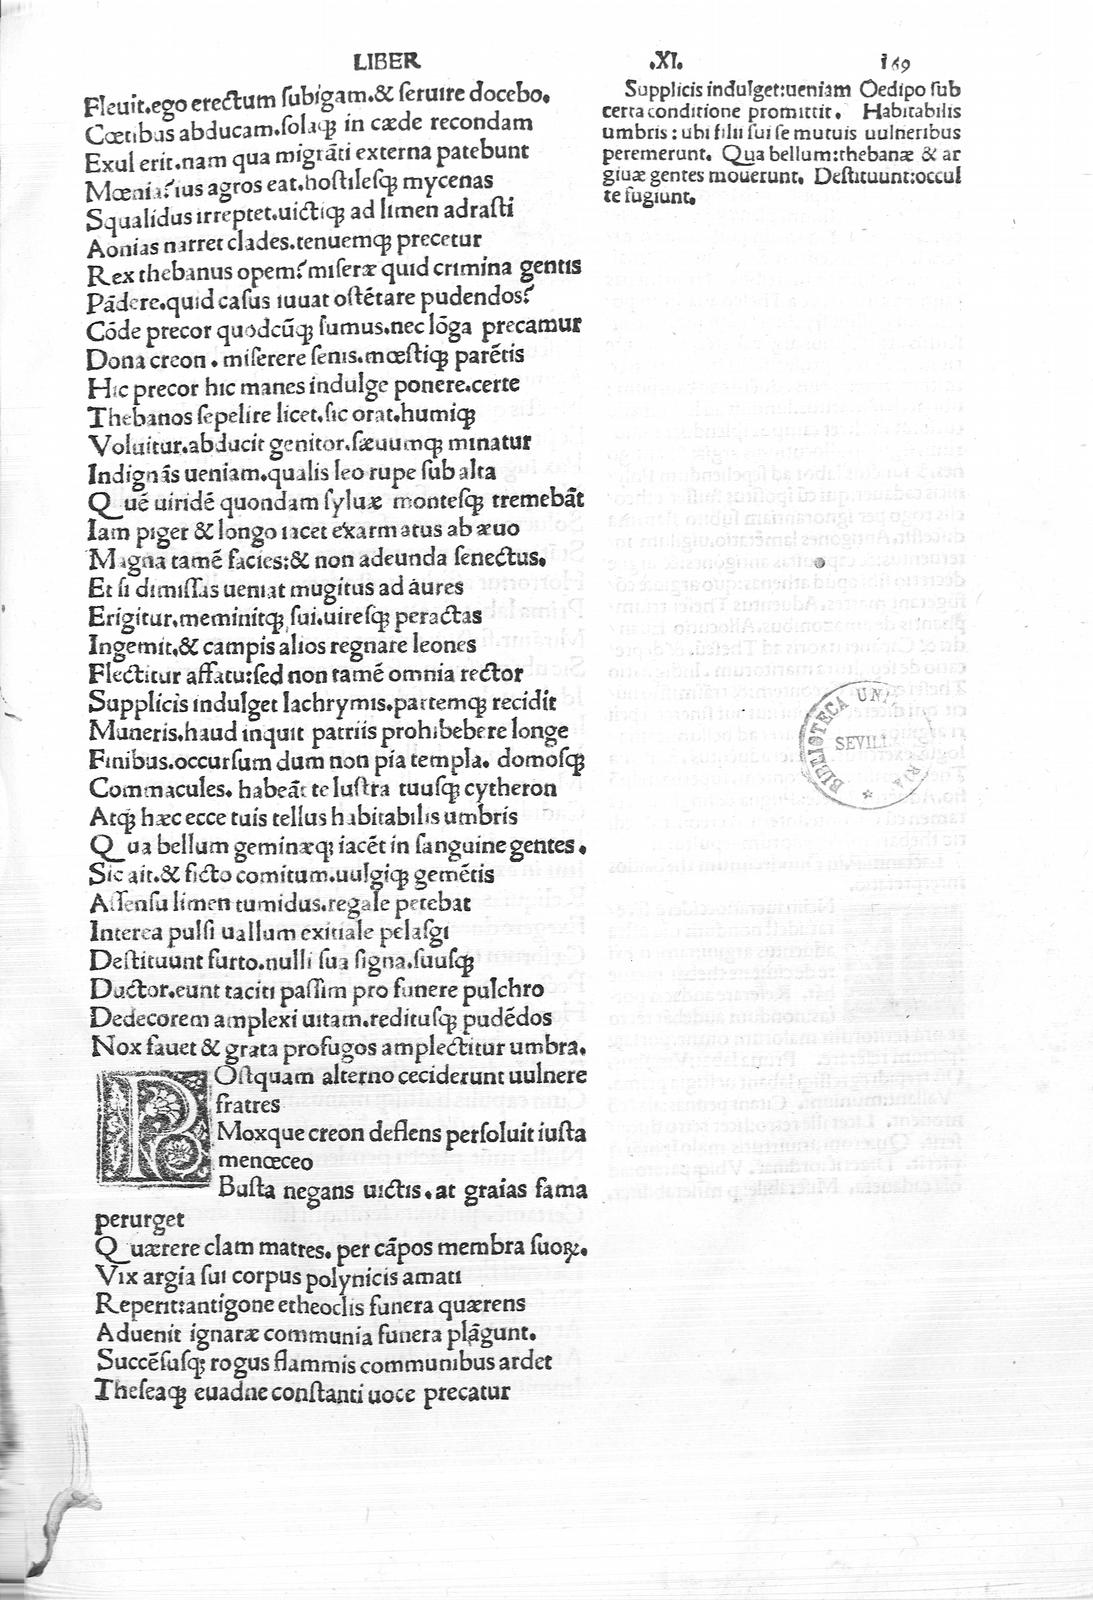 LIBER .XI. 169
Fleuit.ego erectum ſubigam.& ſeruire docebo.
Cœtibus abducam.ſolaꝗ in cæde recondam
Exul erit.nam qua migrãti externa patebunt
Mœnia?ius agros eat.hoſtileſꝗ mycenas
Squalidus irreptet.uictiꝗ ad limen adraſti
Aonias narret clades.tenuemꝗ precetur
Rex thebanus opem?miſeræ quid crimina gentis
Pãdere.quid caſus iuuat oſtẽtare pudendos?
Cõde precor quodcũꝗ ſumus.nec lõga precamur
Dona creon. miſerere ſenis.mœſtiꝗ parẽtis
Hic precor hic manes indulge ponere.certe
Thebanos ſepelire licet.ſic orat.humiꝗ
Voluitur.abducit genitor.ſæuumꝗ minatur
Indignãs ueniam.qualis leo rupe ſub alta
Quẽ uiridẽ quondam ſyluæ monteſꝗ tremebãt
Iam piger & longo iacet exarmatus ab æuo
Magna tamẽ facies:& non adeunda ſenectus.
Et ſi dimiſſas ueniat mugitus ad aures
Erigitur.meminitꝗ ſui.uireſꝗ peractas
Ingemit.& campis alios regnare leones
Flectitur affatu:ſed non tamẽ omnia rector
Supplicis indulget lachrymis.partemꝗ recidit
Muneris.haud inquit patriis prohibebere longe
Finibus.occurſum dum non pia templa. domoſꝗ
Commacules. habeãt te luſtra tuuſꝗ cytheron
Atꝗ hæc ecce tuis tellus habitabilis umbris
Qua bellum geminæꝗ iacẽt in ſanguine gentes.
Sic ait.& ficto comitum.uulgiꝗ gemẽtis
Aſſenſu limen tumidus.regale petebat
Interea pulſi uallum exitiale pelaſgi
Deſtituunt furto.nulli ſua ſigna.ſuuſꝗ
Ductor.eunt taciti paſſim pro funere pulchro
Dedecorem amplexi uitam.redituſꝗ pudẽdos
Nox fauet & grata profugos amplectitur umbra.
POſtquam alterno ceciderunt uulnere
fratres
Moxque creon deflens perſoluit iuſta
menœceo
Buſta negans uictis.at graias fama
perurget
Quærere clam matres. per cãpos membra ſuoꝝ.
Vix argia ſui corpus polynicis amati
Reperit:antigone etheoclis funera quærens
Aduenit ignaræ communia funera plãgunt.
Succẽſuſꝗ rogus flammis communibus ardet
Theſeaꝗ euadne conſtanti uoce precatur
Supplicis indulget:ueniam Oedipo ſub
certa conditione promittit. Habitabilis
umbris: ubi filii ſui ſe mutuis uulneribus
peremerunt. Qua bellum:thebanæ & ar
giuæ gentes mouerunt. Deſtituunt:occul
te fugiunt.
BIBLIOTECA UNI RIA
SEVILLA